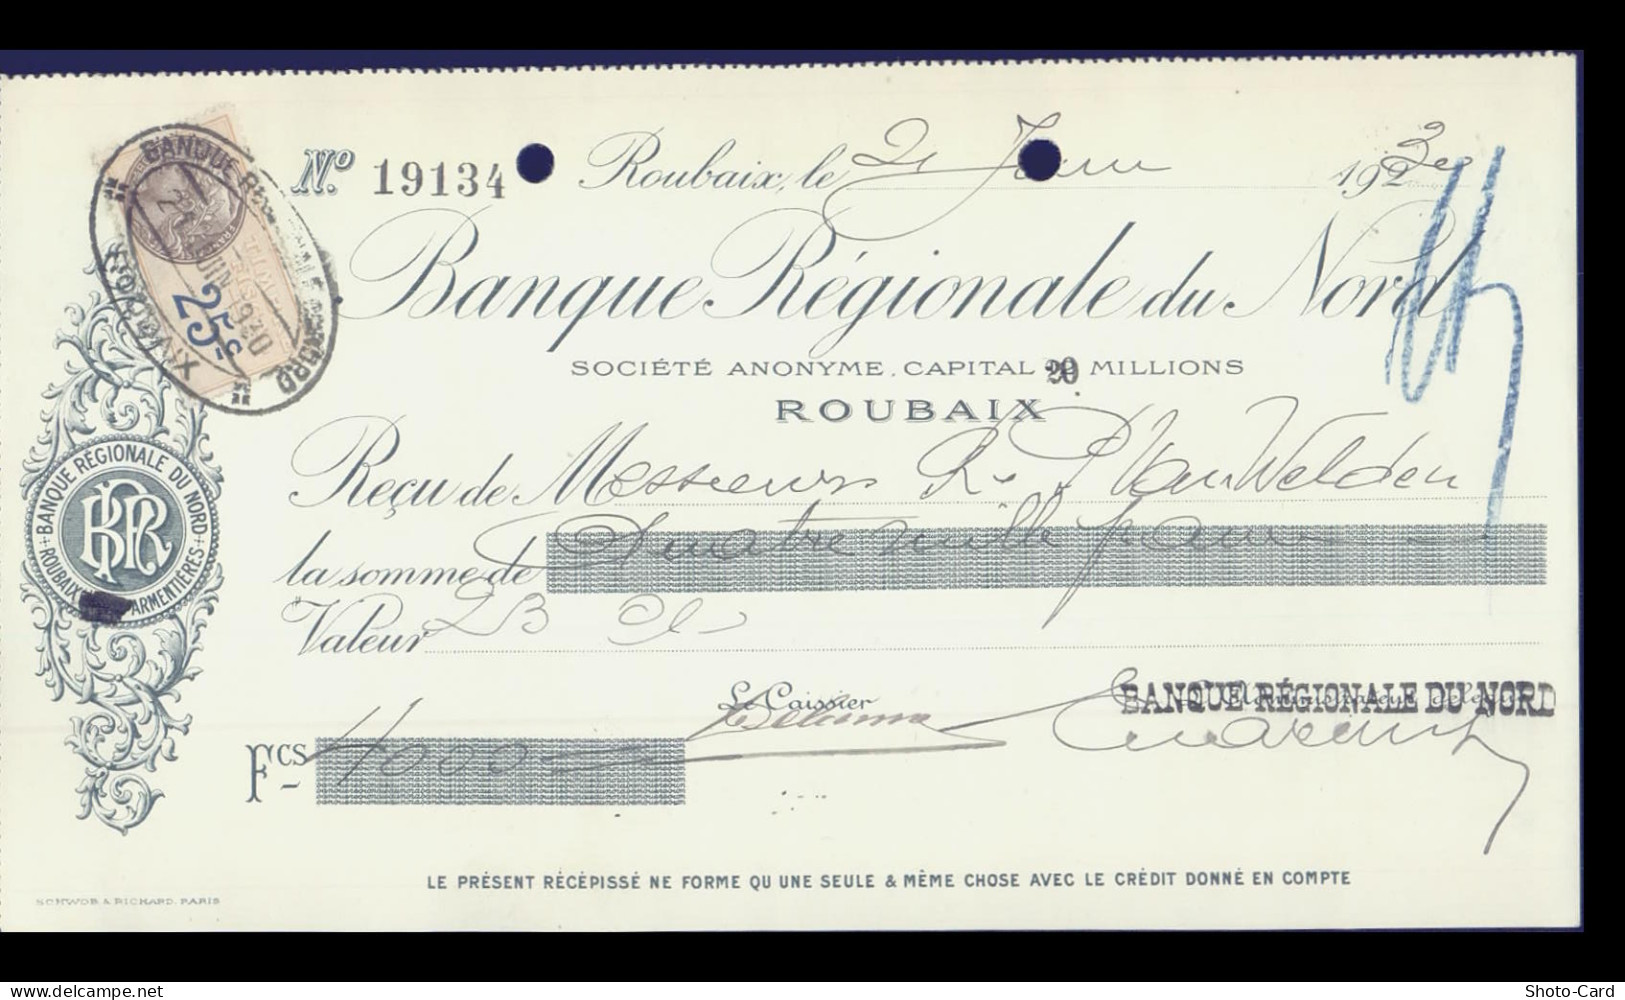 Nº 19134 Roubaix, le 21 Juin 1930
Banque Régionale du Nord
SOCIÉTÉ ANONYME, CAPITAL 20 MILLIONS
ROUBAIX
Reçu de Messieurs R. P. Van Welden
la somme de Quatre mille francs
Valeur 23 ct
Le Caissier
BANQUE RÉGIONALE DU NORD
Fcs 4000
BANQUE RÉGIONALE DU NORD
ROUBAIX
JUIN 1930
25c
BANQUE RÉGIONALE DU NORD
ROUBAIX ARMENTIÈRES
BRN
LE PRÉSENT RÉCÉPISSÉ NE FORME QU UNE SEULE & MÊME CHOSE AVEC LE CRÉDIT DONNÉ EN COMPTE
SCHWOB & RICHARD. PARIS
www.delcampe.net
Shoto-Card